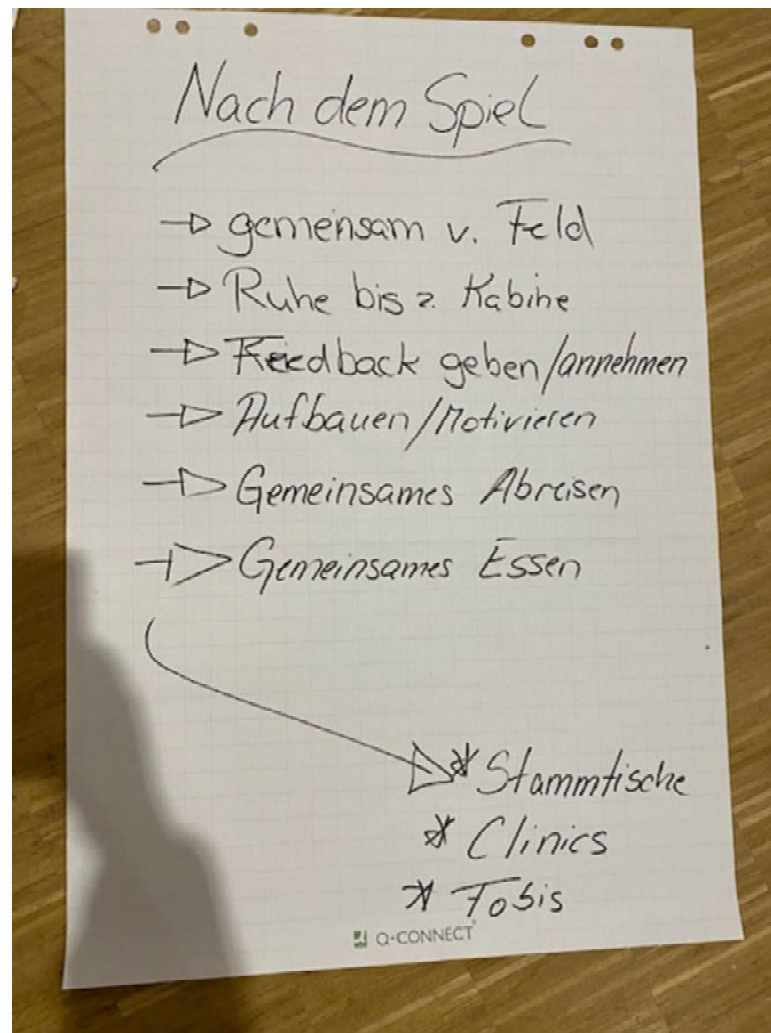 Nach dem Spiel
→ gemeinsam v. Feld
→ Ruhe bis z. Kabine
→ Feedback geben/annehmen
→ Aufbauen/Motivieren
→ Gemeinsames Abreisen
→ Gemeinsames Essen
* Stammtische
* Clinics
* Fobis
Q-CONNECT